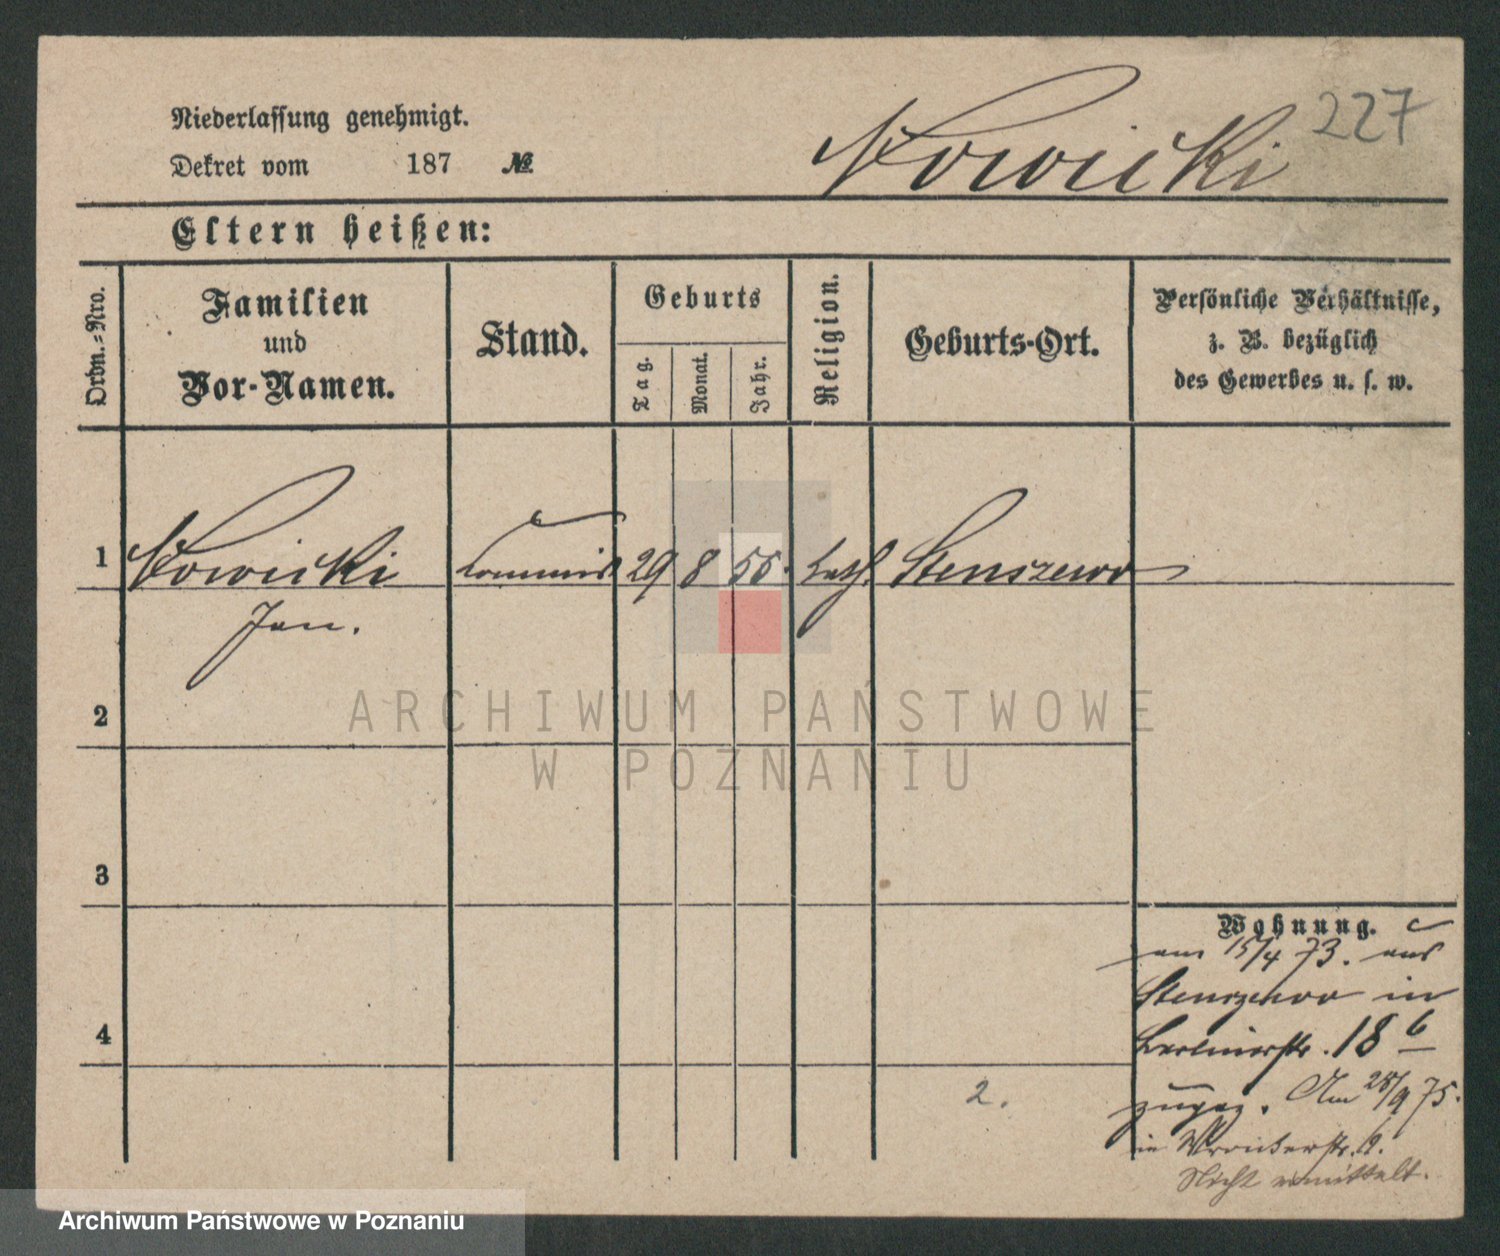 227
Niederlassung genehmigt.
Nowicki
Dekret vom 187 №
Eltern heißen:
Ordn.=Nro.
Familien
und
Vor-Namen.
Stand.
Geburts
Tag.
Monat.
Jahr.
Religion.
Geburts-Ort.
Persönliche Verhältnisse,
z. B. bezüglich
des Gewerbes u. s. w.
1 Nowicki Commis 29 8 55. kath. Stenszewo
Jan.
2
3
4
Wohnung.
am 15/4 73. aus
Stenszewo in
Berlinerstr. 18 b
zugez. Am 28/9 75.
in Wronkerstr.
Nicht ermittelt.
2.
ARCHIWUM PAŃSTWOWE
W POZNANIU
Archiwum Państwowe w Poznaniu